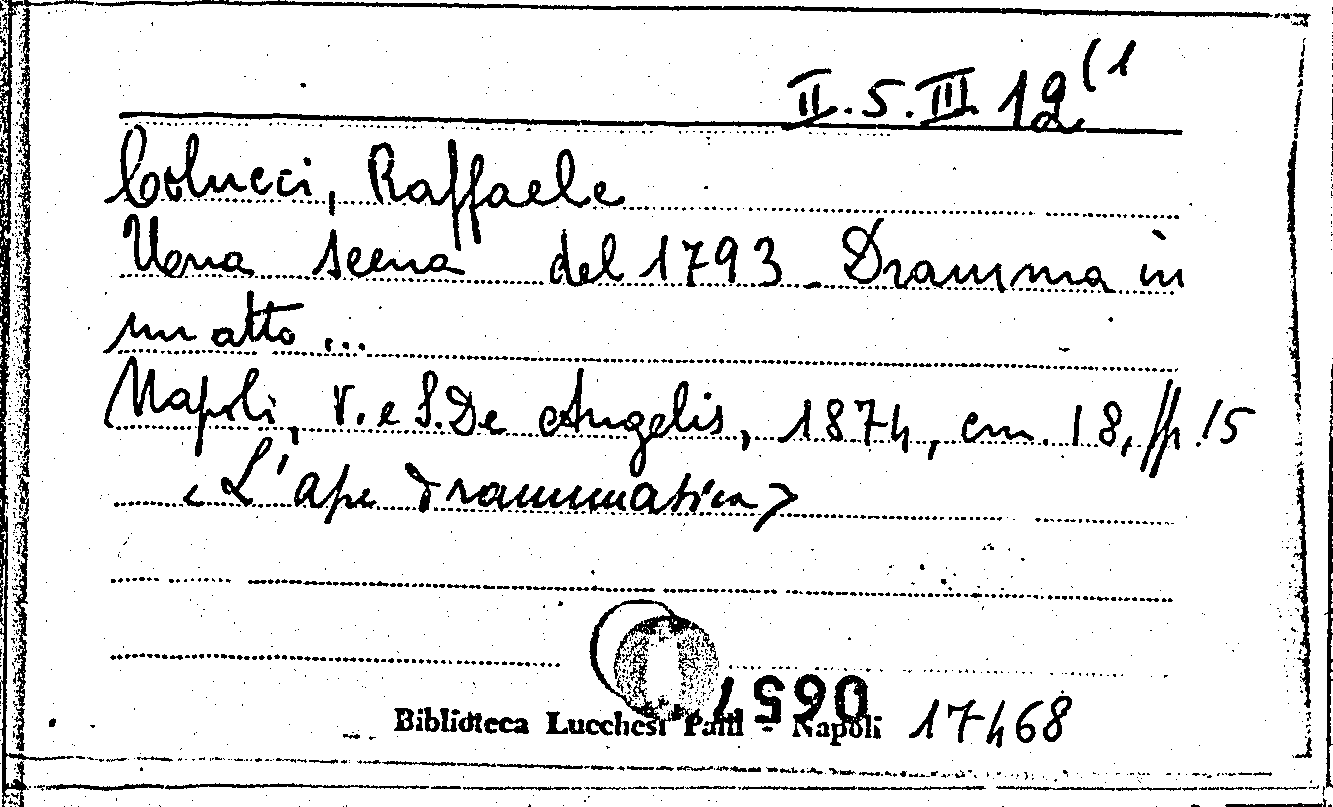 II.5.III 12(1
Colucci, Raffaele
Una scena del 1793 - Dramma in
un atto ...
Napoli, V. e S. De Angelis, 1874, cm. 18, pp. 15
<L'ape drammatica>
Biblioteca Lucchesi Palli - Napoli 17468